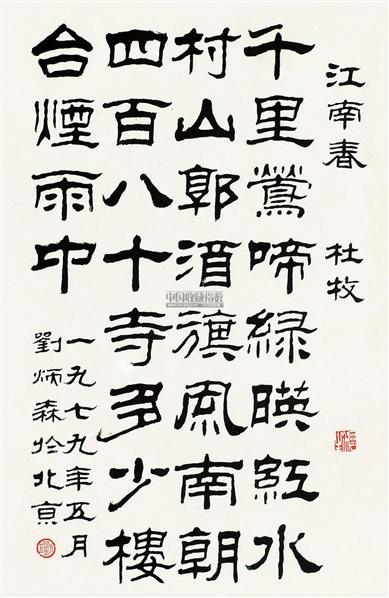 江南春 杜牧
千里鶯啼綠暎紅水
村山郭酒旗風南朝
四百八十寺多少樓
台煙雨中
一九七九年五月
劉炳森扵北亰
中国收藏指数